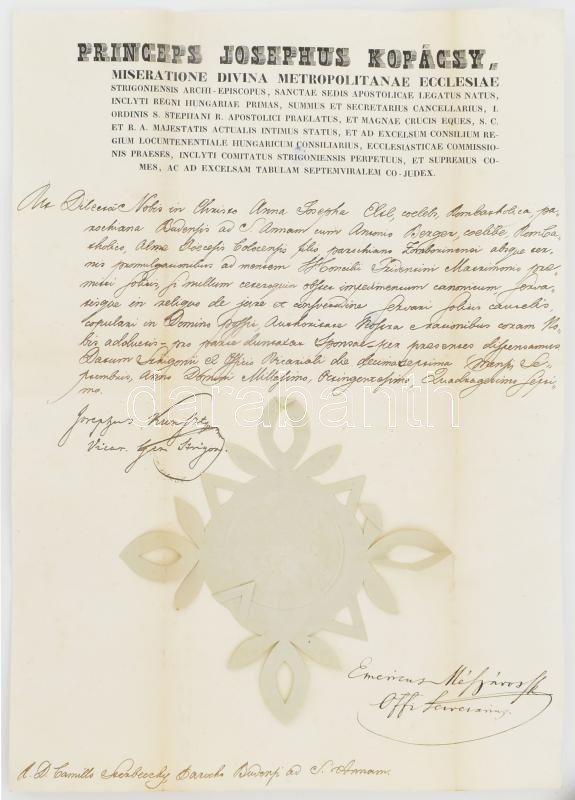 PRINCEPS JOSEPHUS KOPÁCSY,
MISERATIONE DIVINA METROPOLITANAE ECCLESIAE
STRIGONIENSIS ARCHI-EPISCOPUS, SANCTAE SEDIS APOSTOLICAE LEGATUS NATUS,
INCLYTI REGNI HUNGARIAE PRIMAS, SUMMUS ET SECRETARIUS CANCELLARIUS, I.
ORDINIS S. STEPHANI R. APOSTOLICI PRAELATUS, ET MAGNAE CRUCIS EQUES, S. C.
ET R. A. MAJESTATIS ACTUALIS INTIMUS STATUS, ET AD EXCELSUM CONSILIUM RE-
GIUM LOCUMTENENTIALE HUNGARICUM CONSILIARIUS, ECCLESIASTICAE COMMISSIO-
NIS PRAESES, INCLYTI COMITATUS STRIGONIENSIS PERPETUUS, ET SUPREMUS CO-
MES, AC AD EXCELSAM TABULAM SEPTEMVIRALEM CO-JUDEX.
Ut Dilecta Nobis in Christo Anna Josepha coelebs, Rom. Catholica, pa-
rochiana Budensis ad S. Annam cum Antonio Berger, coelibe Rom. Ca-
tholico, Almae Dioecesis Colocensis filio parochiano Zomborinensi absque ter-
nis promulgationibus ad mentem Concilii Tridentini Matrimonio pre-
mitti solitis, si nullum ceteroquin obstet impedimentum canonicum serva-
tisque in reliquo de jure et consvetudine servari solitis cautelis
copulari in Domino possit, Authoritate Nostra e rationibus coram No-
bis adductis pro parte duntaxat Sponsae per praesentes dispensamus
Datum Strigonii ex Officio Vicariali die decima septima Mensis Se-
ptembris, Anno Domini Millesimo, Octingentesimo, Quadragesimo septi-
mo.
darabanth
Josephus Kunszt
Vicar. Gen. Strigon.
Emericus Mészáros
Offi Secretarius.
A. D. Camillo Parocho Budensi ad S. Annam.